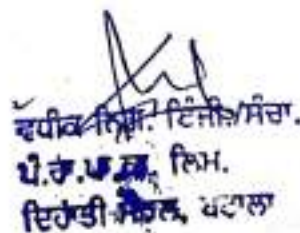 ਵਧੀਕ ਨਿਗ. ਇੰਜੀਨ/ਸੰਚਾ.
ਪੰ.ਰਾ.ਪਾ.ਕਾ. ਲਿਮ.
ਦਿਹਾਤੀ ਮੰਡਲ, ਬਟਾਲਾ